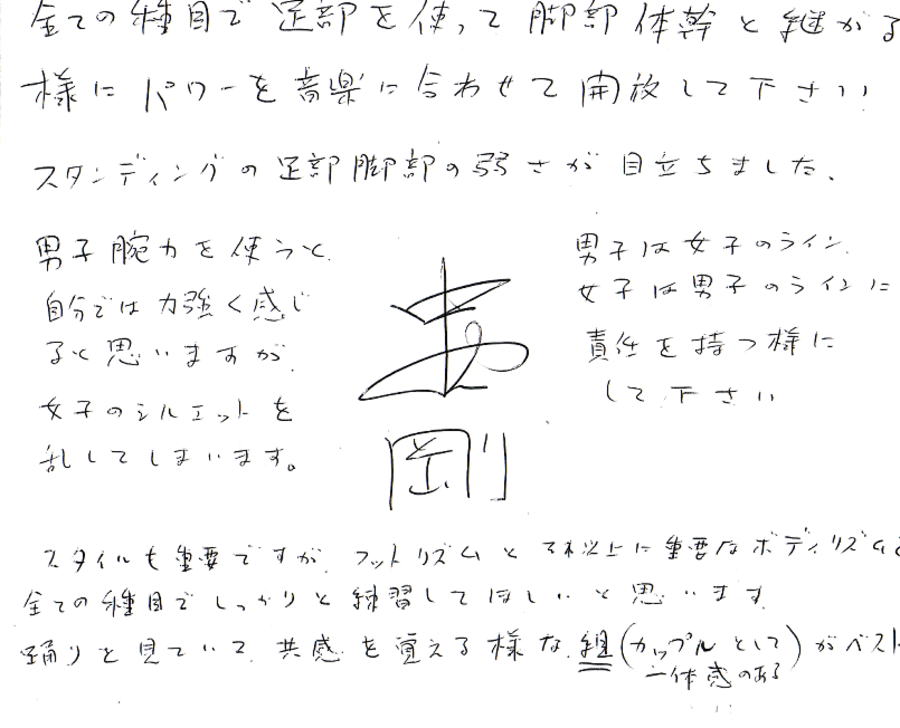 全ての種目で足部を使って脚部体幹と継がる
様にパワーを音楽に合わせて開放して下さい
スタンディングの足部脚部の弱さが目立ちました、
男子腕力を使うと、
自分では力強く感じ
ると思いますが、
女子のシルエットを
乱してしまいます。
剛
男子は女子のライン、
女子は男子のラインに
責任を持つ様に
して下さい
スタイルも重要ですが、フットリズムとそれ以上に重要なボディリズムを
全ての種目でしっかりと練習してほしいと思います
踊りを見ていて、共感を覚える様な組(カップルとして)がベスト
一体感のある